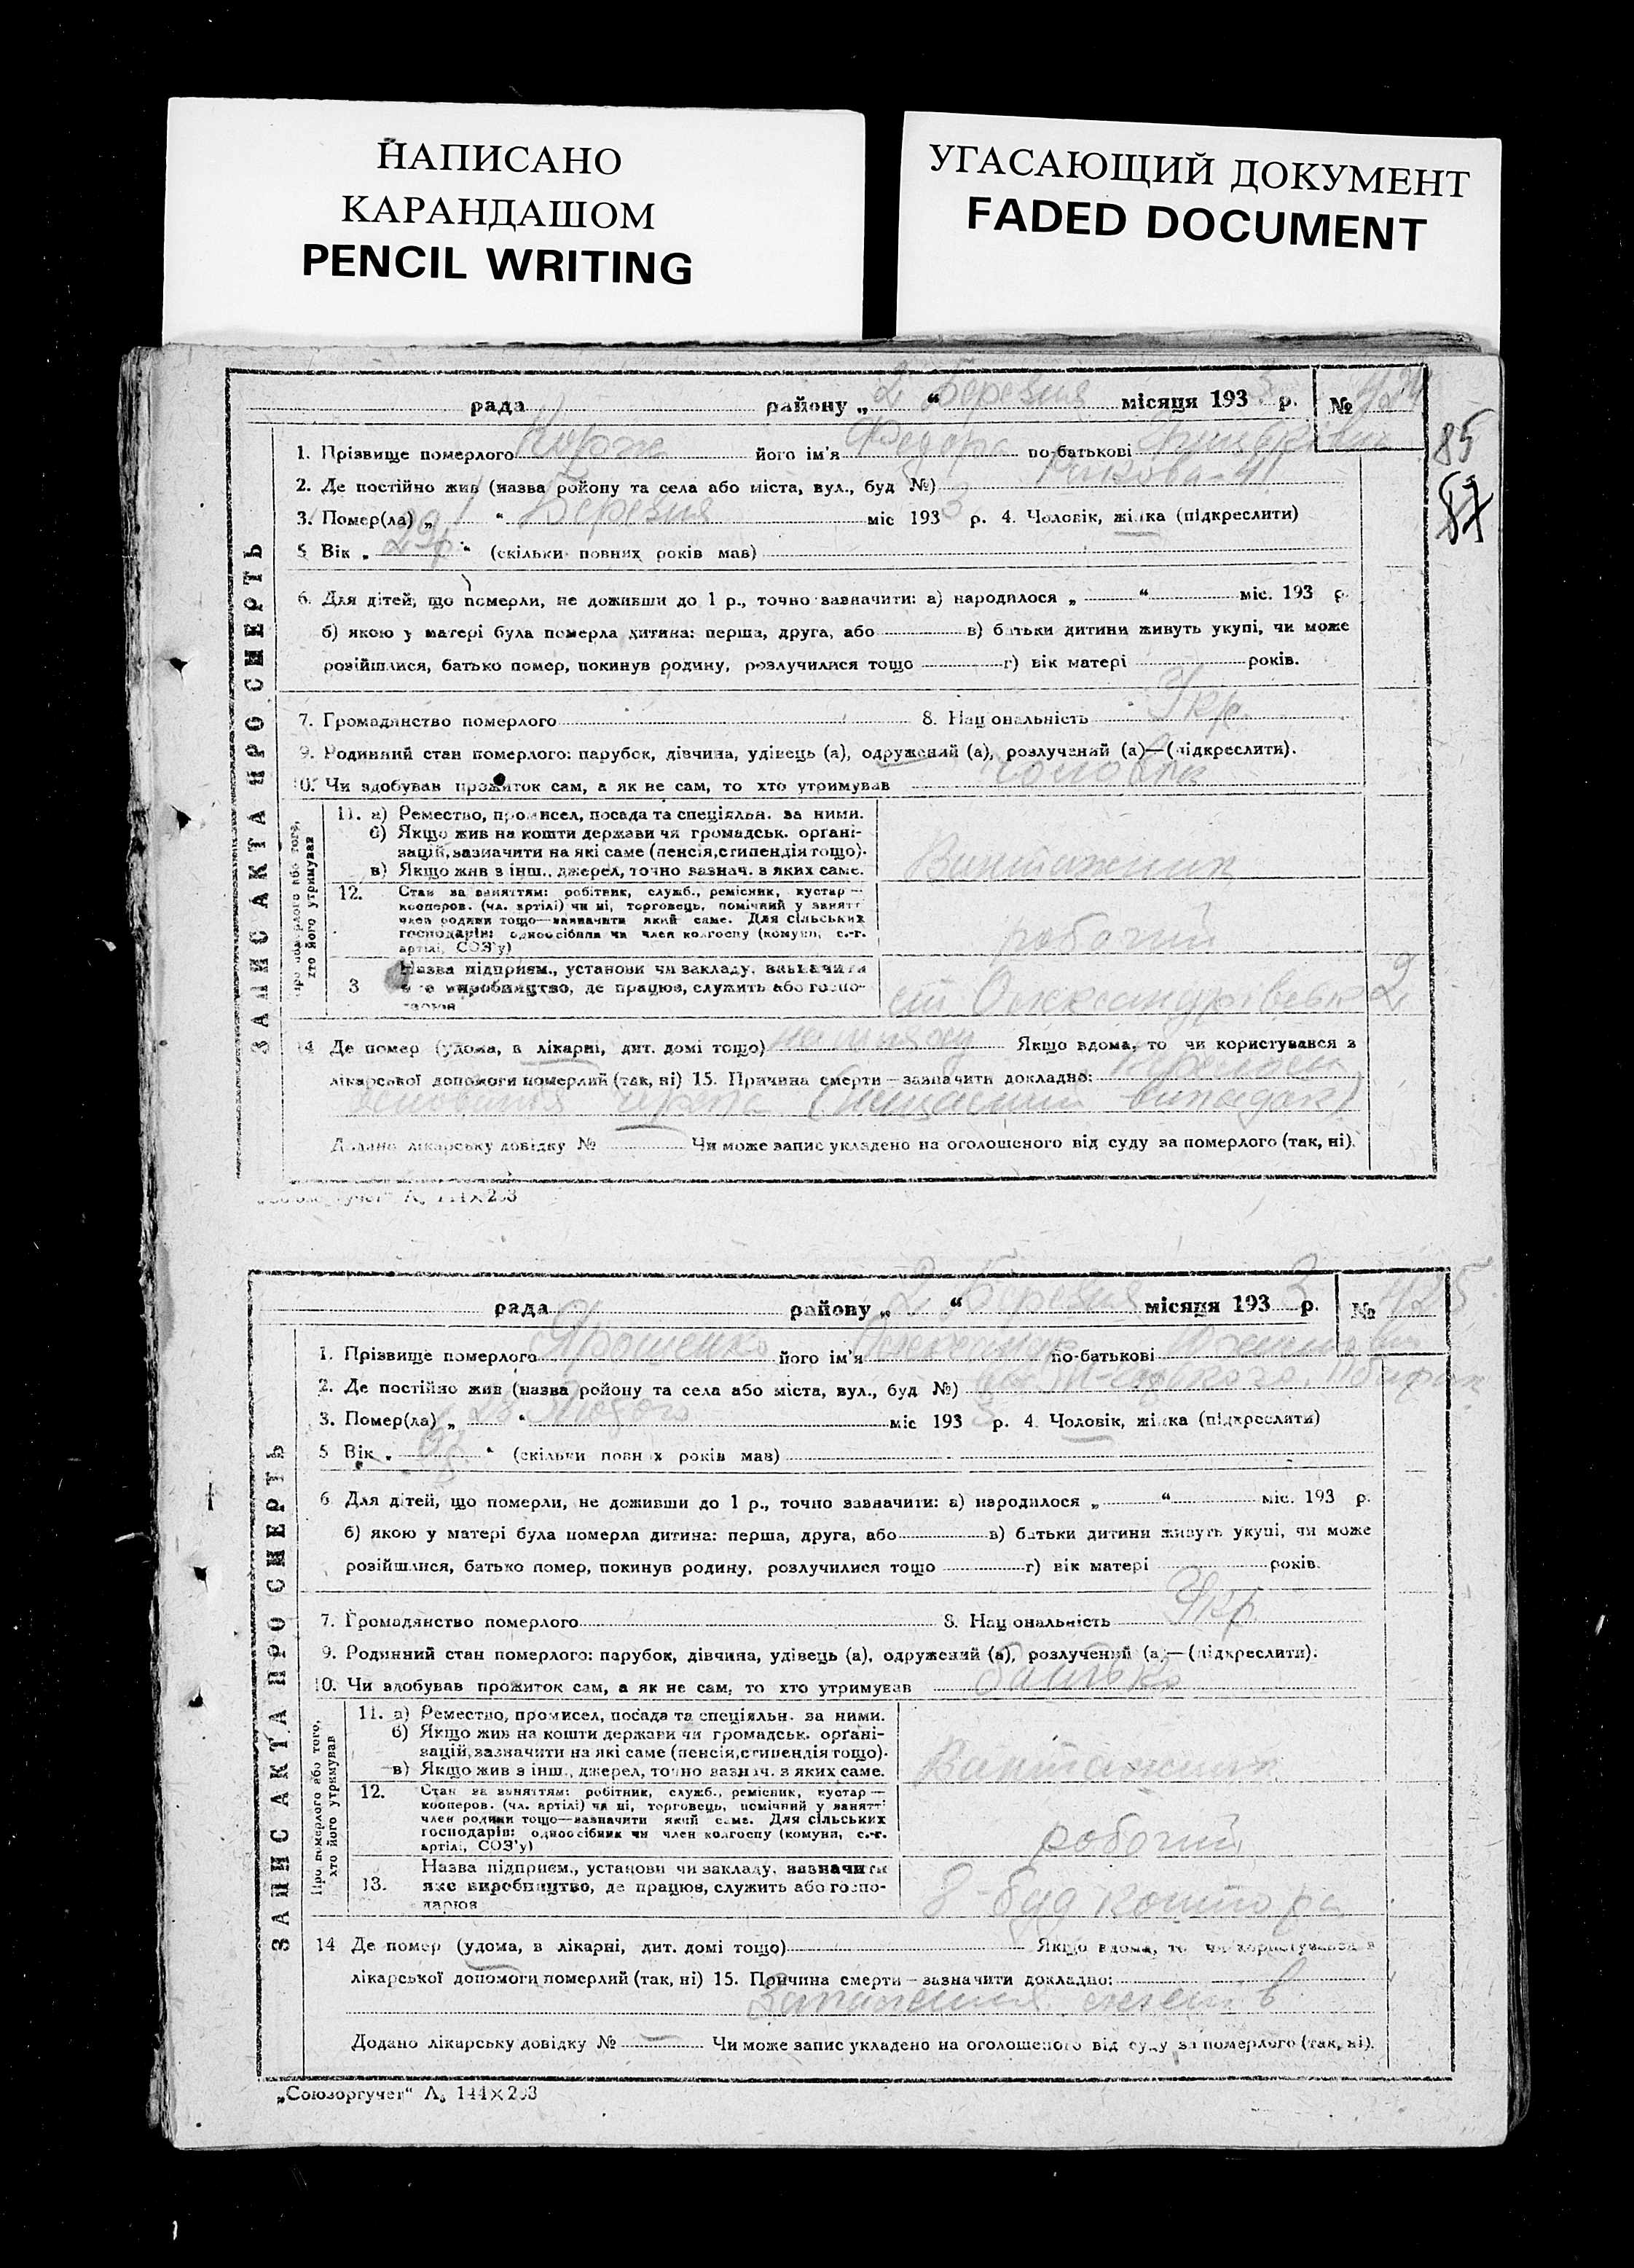 НАПИСАНО
КАРАНДАШОМ
PENCIL WRITING
УГАСАЮЩИЙ ДОКУМЕНТ
FADED DOCUMENT
85
87
ЗАПИС АКТА ПРО СМЕРТЬ
рада району „2“ Березня місяця 1933 р. № 424
1. Прізвище померлого Корж його ім'я Федора по-батькові
2. Де постійно жив (назва ройону та села або міста, вул., буд №)
3. Помер(ла) „1“ Березня міс 1933 р. 4. Чоловік, жінка (підкреслити)
5 Вік „29р“ (скільки повних років мав)
6. Для дітей, що померли, не доживши до 1 р., точно зазначити: а) народилося „ “ міс. 193 р.
б) якою у матері була померла дитина: перша, друга, або в) батьки дитини живуть укупі, чи може
розійшлися, батько помер, покинув родину, розлучилися тощо г) вік матері років.
7. Громадянство померлого 8. Нац ональність Укр.
9. Родинний стан померлого: парубок, дівчина, удівець (а), одружений (а), розлучений (а)—(підкреслити).
10. Чи здобував прожиток сам, а як не сам, то хто утримував чоловік
Про померлого або того, хто його утримував
11. а) Ремество, промисел, посада та спеціяльн. за ними.
б) Якщо жив на кошти держави чи громадськ. орґані-
зацій, зазначити на які саме (пенсія, стипендія тощо).
в) Якщо жив з інш., джерел, точно зазнач. з яких саме.
Вантажник
12. Стан за заняттям: робітник, служб., ремісник, кустар —
кооперов. (чл. артілі) чи ні, торговець, помічний у занятт
член родини тощо—зазначити який саме. Для сільських
господарів: одноосібник чи член колгоспу (комуни, с.-г.
артілі, СОЗ'у)
робочий
3 Назва підприєм., установи чи закладу, зазначити
яке виробництво, де працює, служить або госпо-
дарює
ст Олександрівськ 2
14 Де помер (удома, в лікарні, дит. домі тощо) Якщо вдома, то чи користувався з
лікарської допомоги померлий (так, ні) 15. Причина смерти — зазначити докладно: перелом
основания черепа (нещасний випадок)
Додано лікарську довідку № Чи може запис укладено на оголошеного від суду за померлого (так, ні).
ЗАПИС АКТА ПРО СМЕРТЬ
рада району „2“ Березня місяця 1933 р. № 425
1. Прізвище померлого Ярошенко його ім'я по-батькові
2. Де постійно жив (назва ройону та села або міста, вул., буд №)
3. Помер(ла) „28“ Лютого міс 1933 р. 4. Чоловік, жінка (підкреслити)
5 Вік „ “ (скільки повн х років мав)
6. Для дітей, що померли, не доживши до 1 р., точно зазначити: а) народилося „ “ міс. 193 р.
б) якою у матері була померла дитина: перша, друга, або в) батьки дитини живуть укупі, чи може
розійшлися, батько помер, покинув родину, розлучилися тощо г) вік матері років.
7. Громадянство померлого 8. Нац ональність Укр
9. Родинний стан померлого: парубок, дівчина, удівець (а), одружений (а), розлучений (а)—(підкреслити).
10. Чи здобував прожиток сам, а як не сам, то хто утримував батько
Про померлого або того, хто його утримував
11. а) Ремество, промисел, посада та спеціяльн. за ними.
б) Якщо жив на кошти держави чи громадськ. орґані-
зацій, зазначити на які саме (пенсія, стипендія тощо).
в) Якщо жив з інш., джерел, точно зазнач. з яких саме.
Вантажник
12. Стан за заняттям: робітник, служб., ремісник, кустар —
кооперов. (чл. артілі) чи ні, торговець, помічний у занятті
член родини тощо—зазначити який саме. Для сільських
господарів: одноосібник чи член колгоспу (комуни, с.-г.
артілі, СОЗ'у)
робочий
13. Назва підприєм., установи чи закладу, зазначити
яке виробництво, де працює, служить або госпо-
дарює
8 буд контора
14 Де помер (удома, в лікарні, дит. домі тощо) Якщо вдома, то чи користувався з
лікарської допомоги померлий (так, ні) 15. Причина смерти — зазначити докладно:
Запалення легенів
Додано лікарську довідку № Чи може запис укладено на оголошеного від суду за померлого (так, ні).
„Союзоргучет“ А₅ 144×203